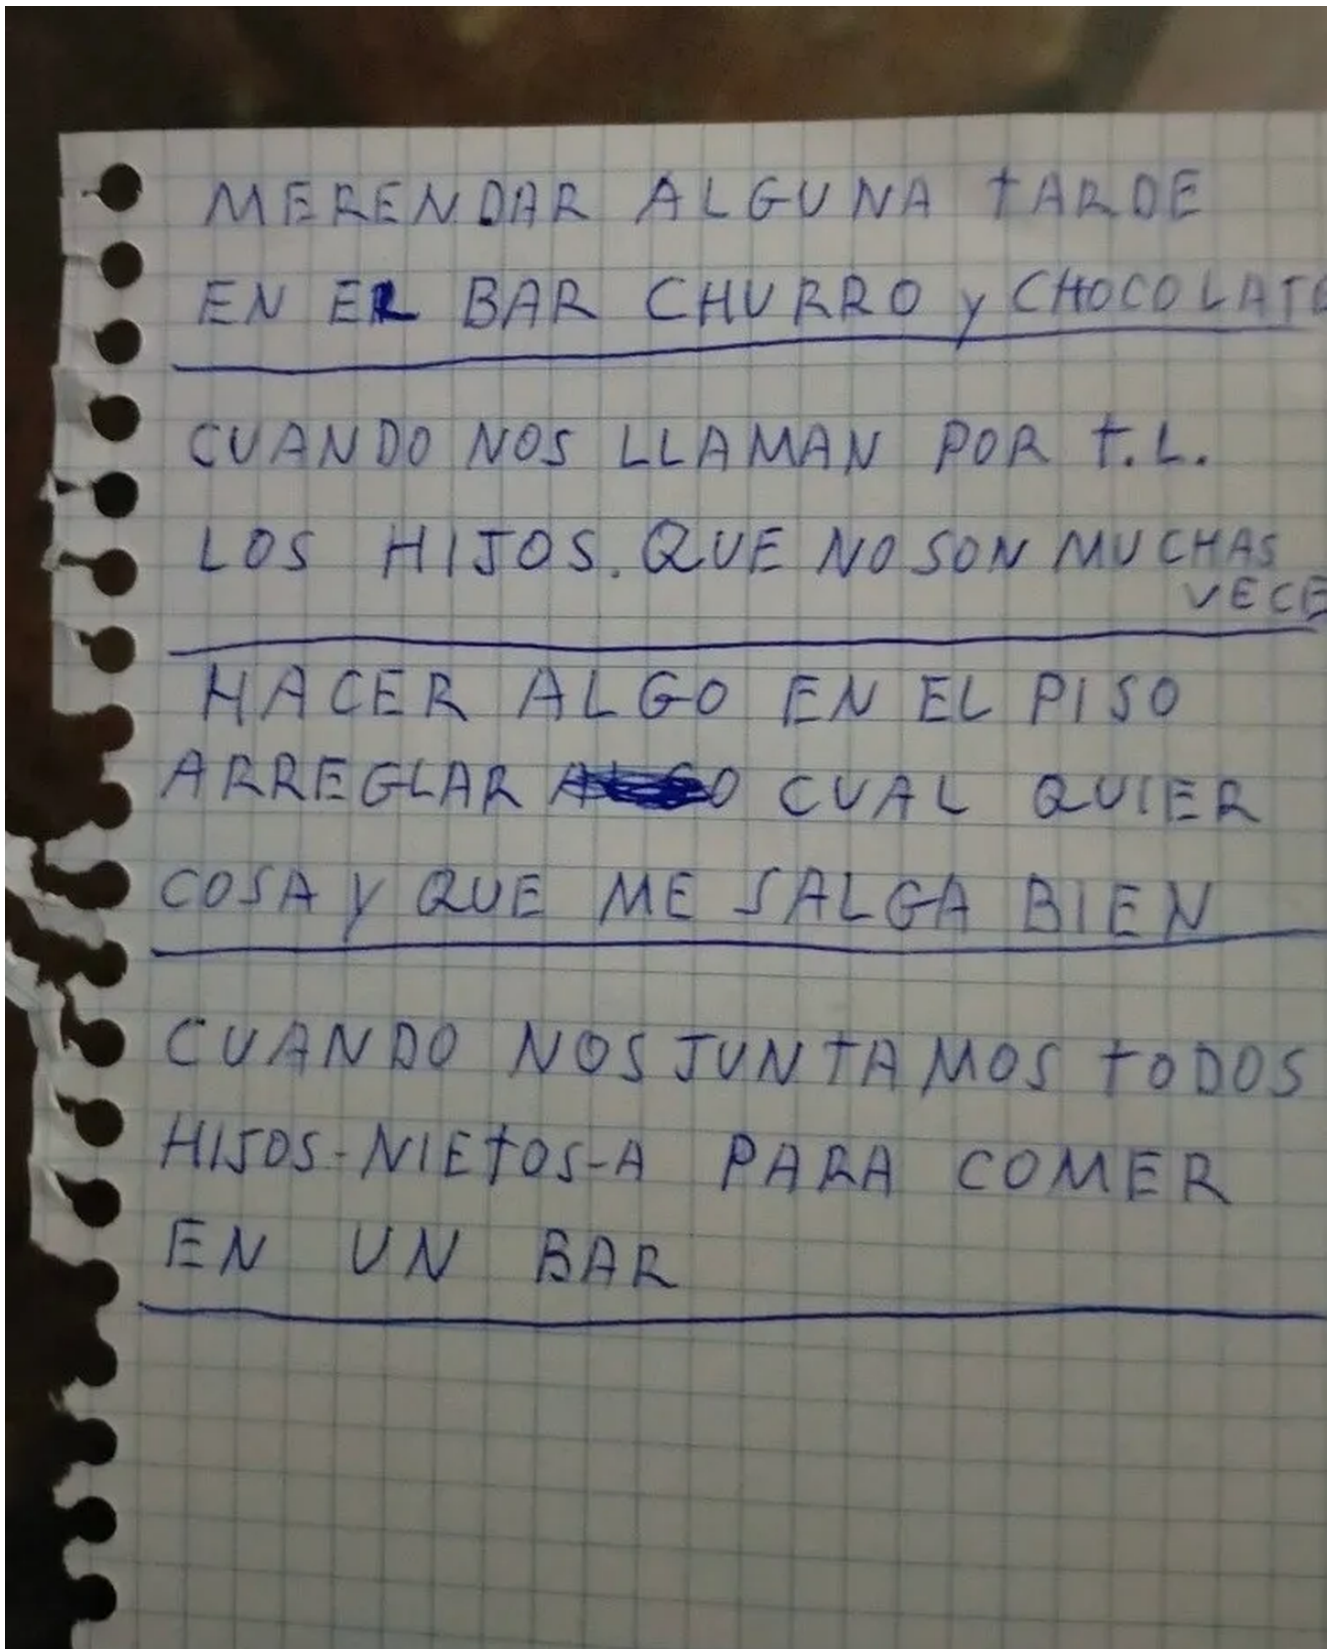 MERENDAR ALGUNA TARDE
EN EL BAR CHURRO Y CHOCOLATE
CUANDO NOS LLAMAN POR T.L.
LOS HIJOS. QUE NO SON MUCHAS
VECE
HACER ALGO EN EL PISO
ARREGLAR CUAL QUIER
COSA Y QUE ME SALGA BIEN
CUANDO NOS JUNTAMOS TODOS
HIJOS-NIETOS-A PARA COMER
EN UN BAR